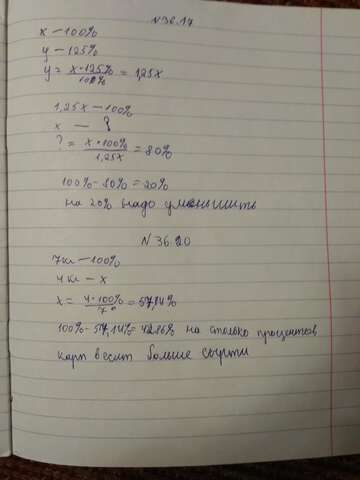 N36.17
x – 100%
y – 125%
y = x·125% / 100% = 1,25x
1,25x – 100%
x – ?
? = x·100% / 1,25x = 80%
100% - 80% = 20%
на 20% надо уменьшить
N 36.20
7кг – 100%
4кг – x
x = 4·100% / 7 = 57,14%
100% - 57,14% = 42,86% на столько процентов
карп весит больше